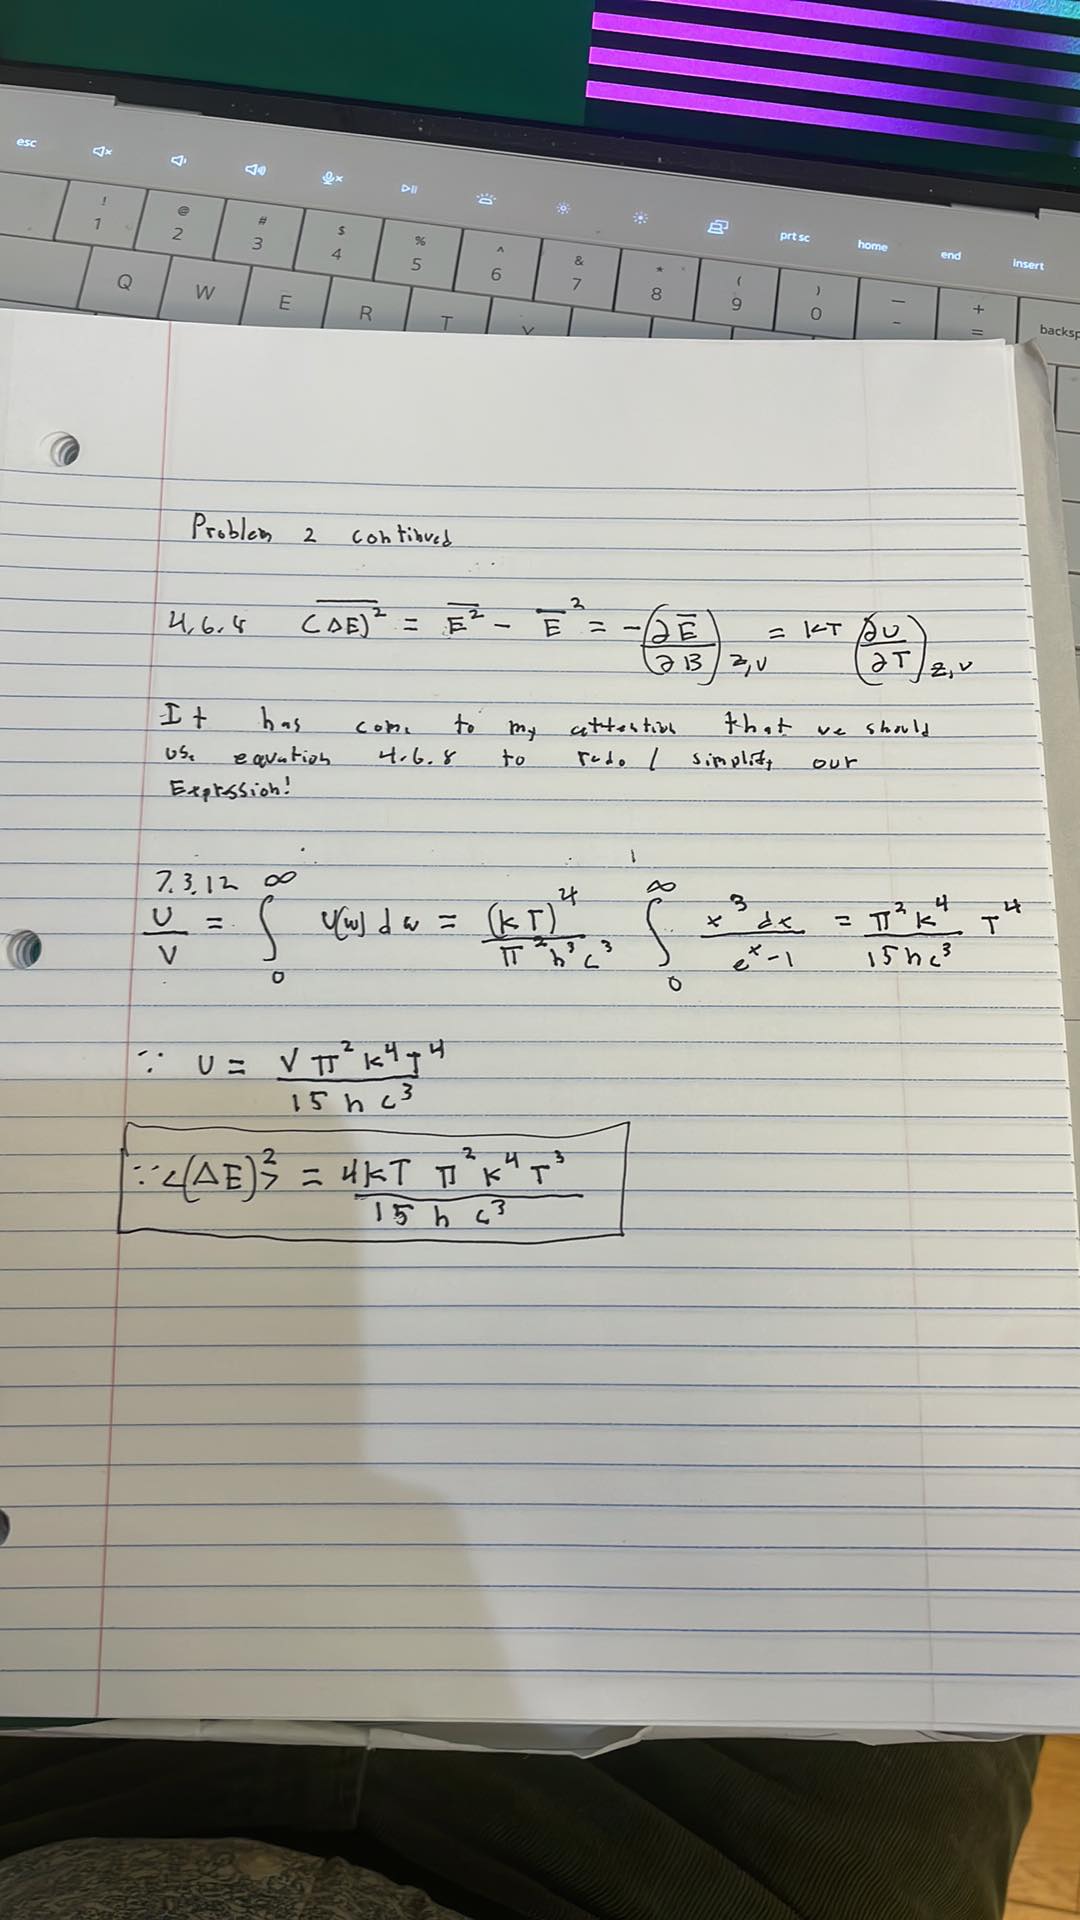 esc
prt sc home end insert
! 1 @ 2 # 3 $ 4 % 5 ^ 6 & 7 * 8 ( 9 ) 0 — - + =
Q W E R T Y backsp
Problem 2 continued
4.6.8 \overline{(ΔE)^2} = \overline{E^2} - \overline{E}^2 = -(∂\overline{E}/∂B)_{z,v} = kT (∂U/∂T)_{z,v}
It has come to my attention that we should
use equation 4.6.8 to redo / simplify our
Expression!
7.3.12
U/V = ∫_0^∞ U(w) dw = (kT)^4/(π^2 h^3 c^3) ∫_0^∞ x^3 dx/(e^x - 1) = π^2 k^4/(15 h c^3) T^4
∵ U = V π^2 k^4 T^4/(15 h c^3)
∵ <(ΔE)^2> = 4kT π^2 k^4 T^3/(15 h c^3)